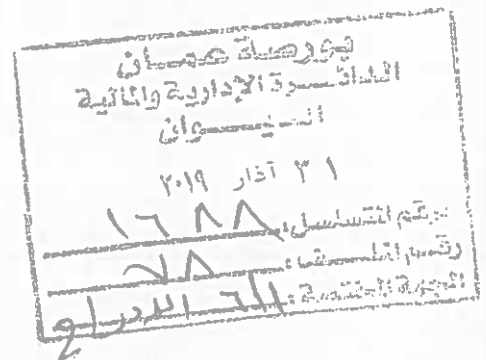 بورصة عمان
الدائرة الإدارية والمالية
الديوان
٣١ آذار ٢٠١٩
رقم التسلسل: ١٦٨٨
رقم الملف:
الجهة المختصة: الادراج